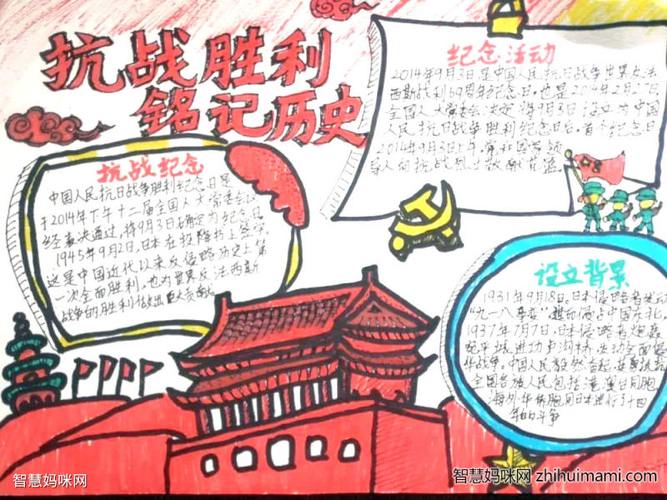 抗战胜利
铭记历史
纪念活动
2014年9月3日是中国人民抗日战争世界反法
西斯战利69周年纪念日,也是2014年2月27日
全国人大常委会决定将9月3日设立为中国
人民抗日战争胜利纪念日后,首个纪念日
2014年9月3日上午,党和国家领
导人向抗战烈士敬献花篮
抗战纪念
中国人民抗日战争胜利纪念日是
于2014年下午十二届全国人大常委会以
经表决通过,将9月3日确定为纪念日
1945年9月2日,日本在投降书上签字
这是中国近代以来反侵略历史上第
一次全面胜利,也为世界反法西斯
战争的胜利做出巨大贡献
设立背景
1931年9月18日,日本侵略者发动
"九一八事变",中国东北
1937年7月7日,日本侵略者炮轰
宛平城进攻卢沟桥,发动全面侵
华战争。中国人民毅然奋起,
全国各族人民包括港澳台同胞
海外华侨同日本进行了十四
年的斗争
智慧妈咪网
智慧妈咪网 zhihuimami.com